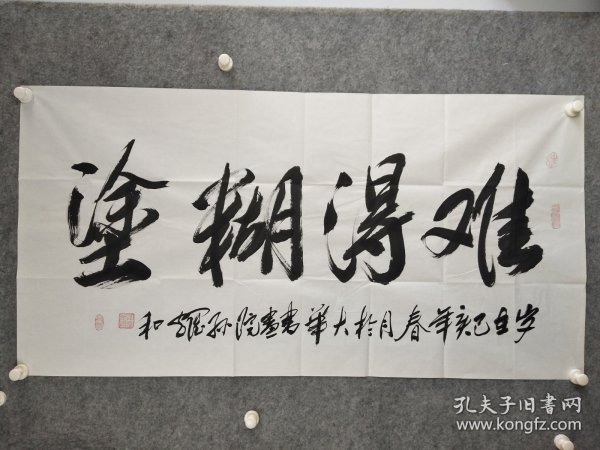 难得糊塗
岁在己亥年春月於大華書畫院孙耀和
孔夫子旧書网
www.kongfz.com